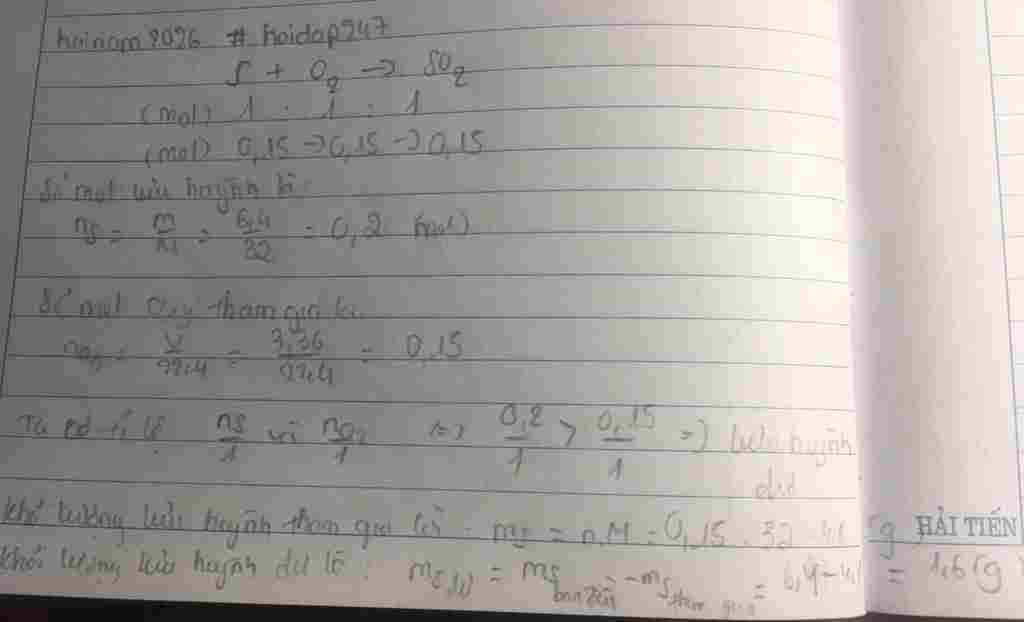 hainam2026 # hoidap247
S + O₂ → SO₂
(mol) 1 : 1 : 1
(mol) 0,15 → 0,15 → 0,15
Số mol lưu huỳnh là:
nS = m/M = 6,4/32 = 0,2 (mol)
Số mol Oxy tham gia là:
nO₂ = V/22,4 = 3,36/22,4 = 0,15
Ta có tỉ lệ nS/1 và nO₂/1 => 0,2/1 > 0,15/1 => lưu huỳnh
dư
khối lượng lưu huỳnh tham gia là: mS = n.M = 0,15 . 32 = 4,8g
HẢI TIẾN
khối lượng lưu huỳnh dư là: mS dư = mS ban đầu - mS tham gia = 6,4 - 4,8 = 1,6 (g